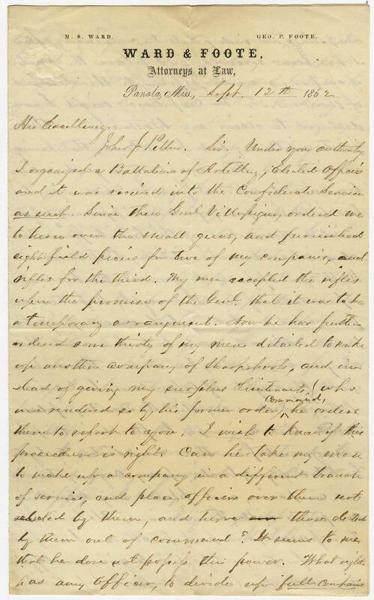 M. S. WARD. GEO. P. FOOTE.
WARD & FOOTE,
Attorneys at Law,
Panola, Miss, Sept. 12th 1862
His Excellency
John J Pettus. Sir. Under your authority
I organised a Battalion of Artillery, elected officers
and it was received into the Confederate Service
as such. Since then Genl Villepigue, ordered me
to turn over the small guns, and furnished
eight field pieces for two of my companies, and
rifles for the third. My men accepted the rifles
upon the promise of the Genl. that it was to be
a temporary arrangement. Now he has further
ordered some thirty of my men detailed to make
up another company of Sharpshoots, and in-
stead of giving my surplus Lieutenants, (who
command,
were rendered so by his former order, he orders
them to report to you. I wish to know if this
procedure is right. Can he take my men
to make up a company in a different branch
of service, and place officers over them not
selected by them, and turn those elected
by them out of command? It seems to me
that he does not possess this power. What right
has any officer, to divide up full companies